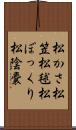 松かさ松
笠松毬松
ぼっくり
松陰嚢